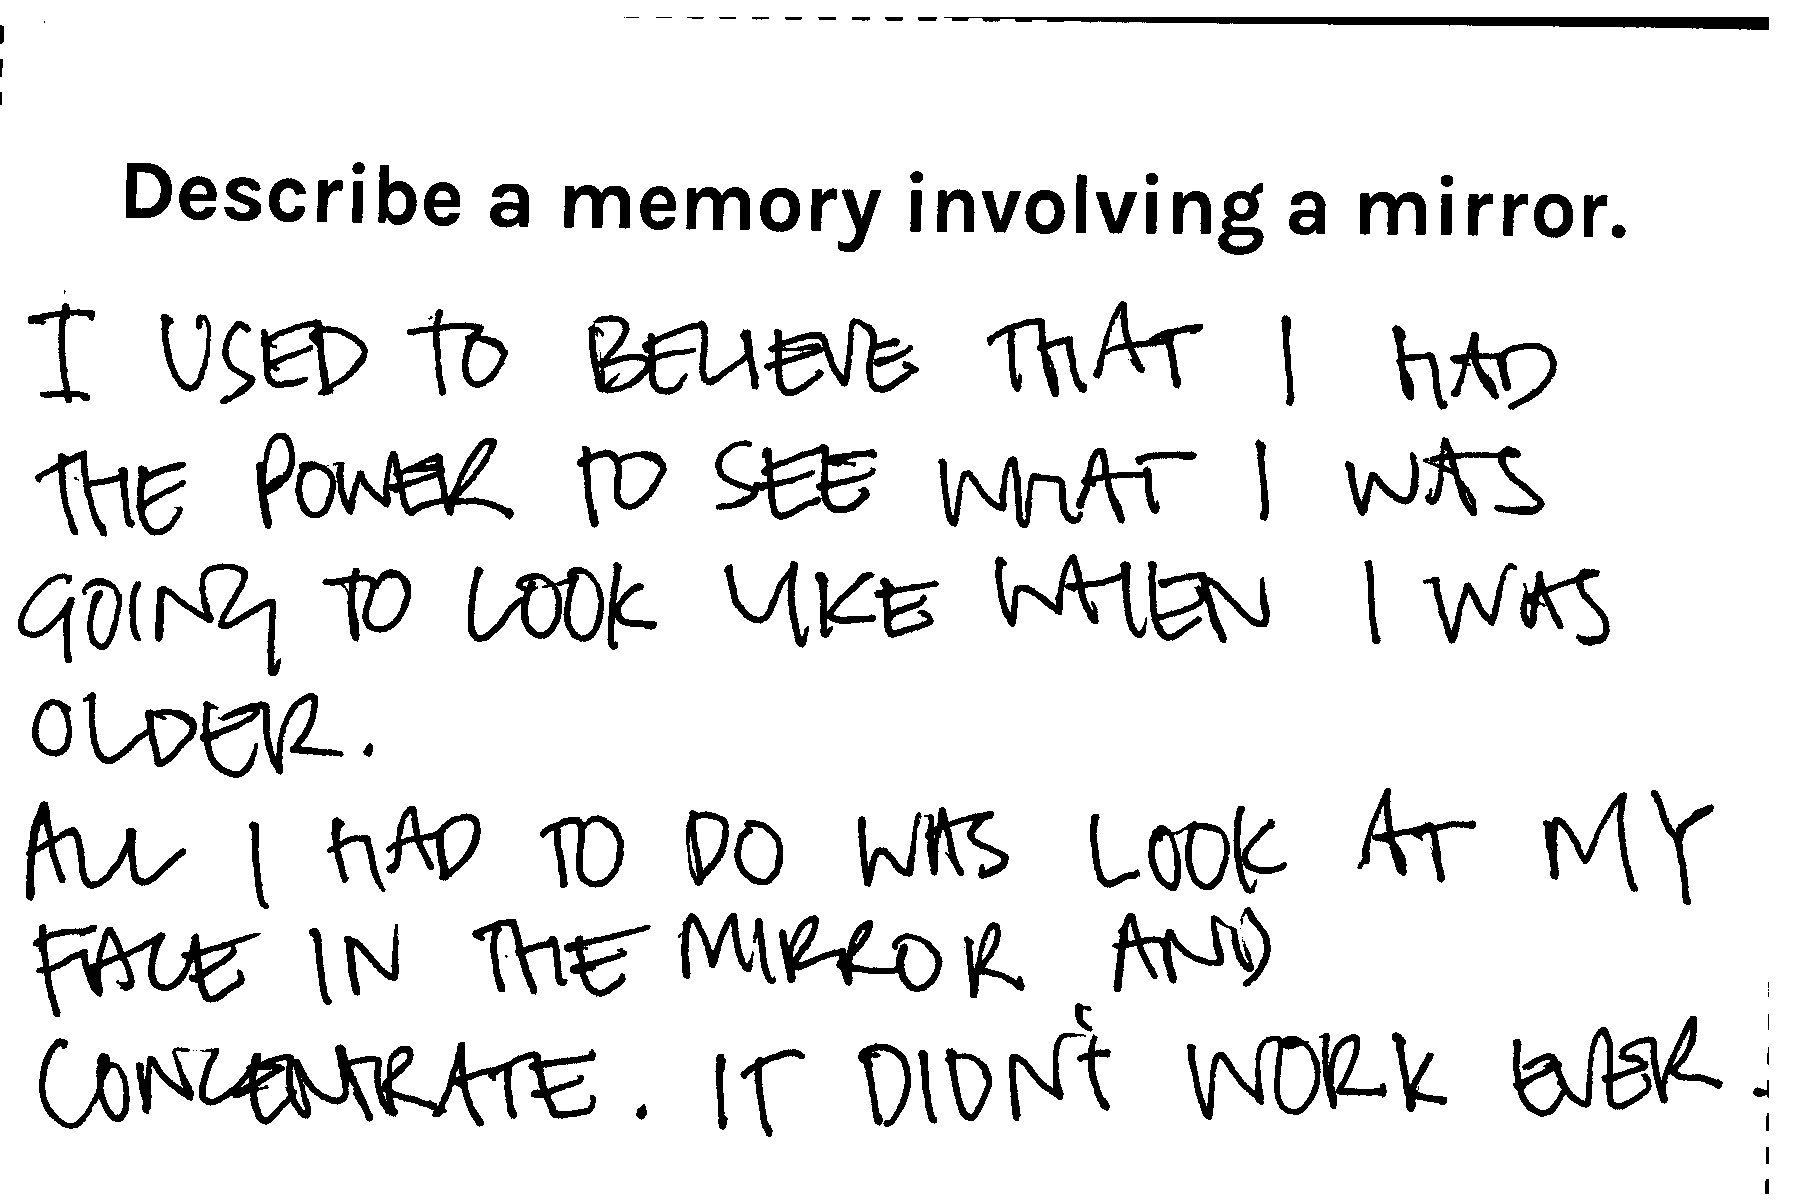 Describe a memory involving a mirror.
I USED TO BELIEVE THAT I HAD
THE POWER TO SEE WHAT I WAS
GOING TO LOOK LIKE WHEN I WAS
OLDER.
ALL I HAD TO DO WAS LOOK AT MY
FACE IN THE MIRROR AND
CONCENTRATE. IT DIDN'T WORK EVER.